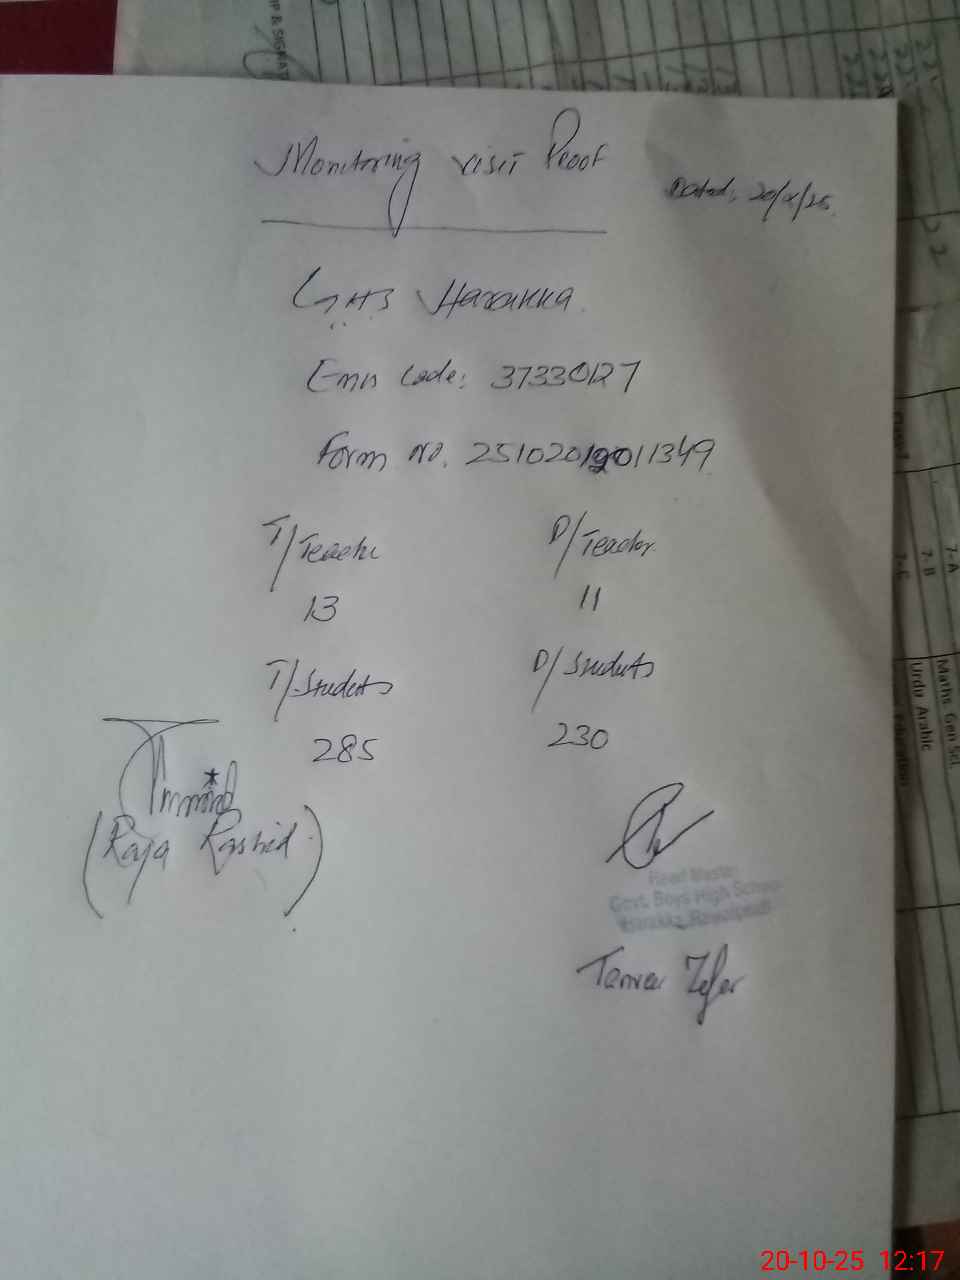 Monitoring visit Proof
Dated: 20/X/25
GHS Harakka
Emis Code: 37330127
Form No. 25102019011349
T/Teacher D/Teacher
13 11
T/Students D/Students
285 230
(Raja Rashid)
Head Master
Govt. Boys High School
Harakka, Rawalpindi
Tanveer Zafar
7-A
7-B
7-C
Maths Gen Sci
Urdu Arabic
Education
20-10-25 12:17